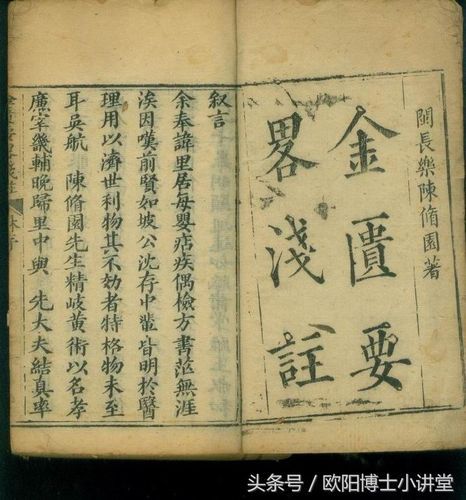 閩長樂陳脩園著
金匱要
畧淺註
叙言
余奉諱里居每嬰痁疾偶檢方書茫無涯
涘因嘆前賢如坡公沈存中輩皆明於醫
理用以濟世利物其不効者特格物未至
耳吳航陳脩園先生精岐黃術以名孝
廉宰畿輔晚歸里中與 先大夫結真率
头条号/欧阳博士小讲堂